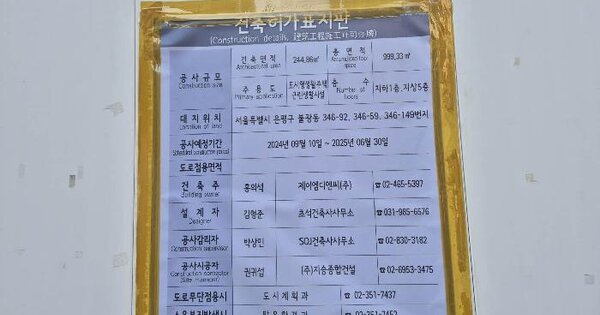 건축허가표지판
(Construction details, 建筑工程施工许可修牌)
건축면적 244.86㎡ 총면적 999.33㎡
Architectural area Accumulated floor space
공사규모 Construction size
주용도 도시형생활주택 층수 지하1층, 지상5층
Primary application 근린생활시설 Number of floors
대지위치 서울특별시 은평구 불광동 346-92, 346-59, 346-149번지
Location of land
공사예정기간 2024년 09월 10일 ~ 2025년 06월 30일
Scheduled construction period
도로점용면적
건축주 홍의섭 제이엠디엔씨(주) ☎02-465-5397
Building master
설계자 김형준 초석건축사사무소 ☎031-985-6576
Designer
공사감리자 박상민 SOJ건축사사무소 ☎02-830-3182
Construction supervisor
공사시공자 권귀섭 (주)지승종합건설 ☎02-6953-3475
Construction contractor
(Site manager)
도로무단점용시 도시계획과 ☎02-351-7437